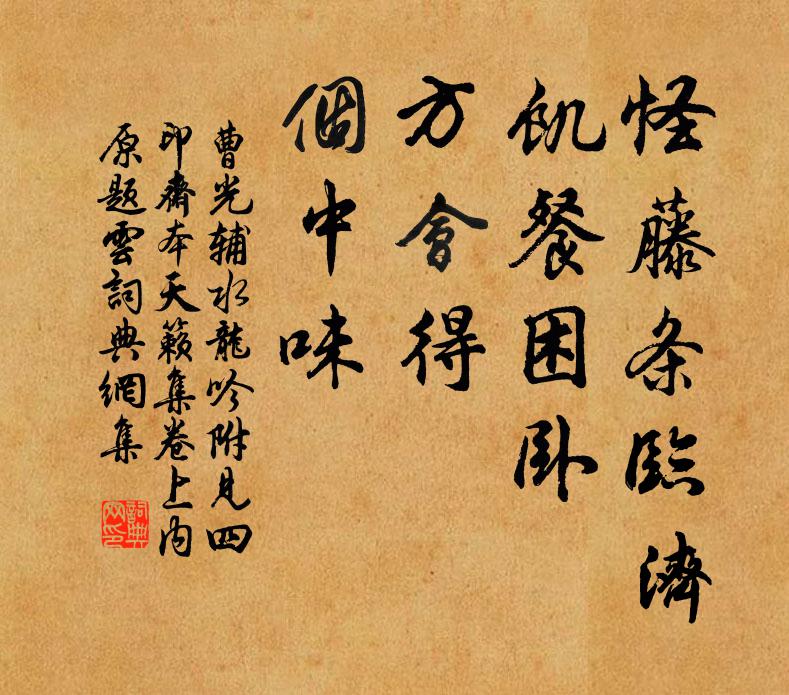 怪藤条臨濟
飢餐困卧
方會得
個中味
曹光辅水龍吟附見四
印齋本天籟集卷上内
原題雲詞典網集
詞典网印